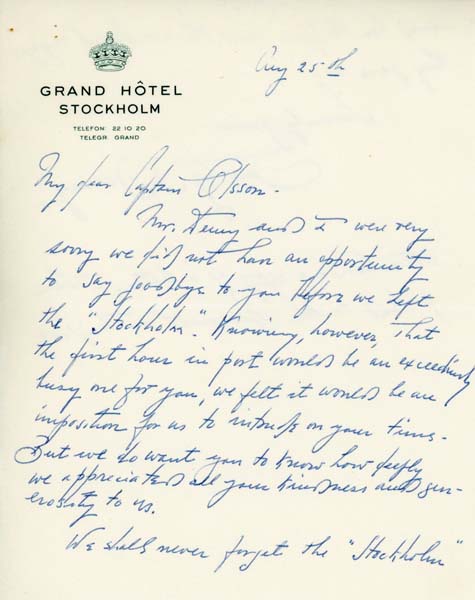 GRAND HÔTEL
STOCKHOLM
TELEFON 22 10 20
TELEGR. GRAND
Aug 25th
My dear Captain Olsson -
Mr. Denny and I were very
sorry we did not have an opportunity
to say goodbye to you before we left
the "Stockholm". Knowing, however, that
the first hour in port would be an exceedingly
busy one for you, we felt it would be an
imposition for us to intrude on your time -
But we do want you to know how deeply
we appreciated all your kindness and gen-
erosity to us.
We shall never forget the "Stockholm"